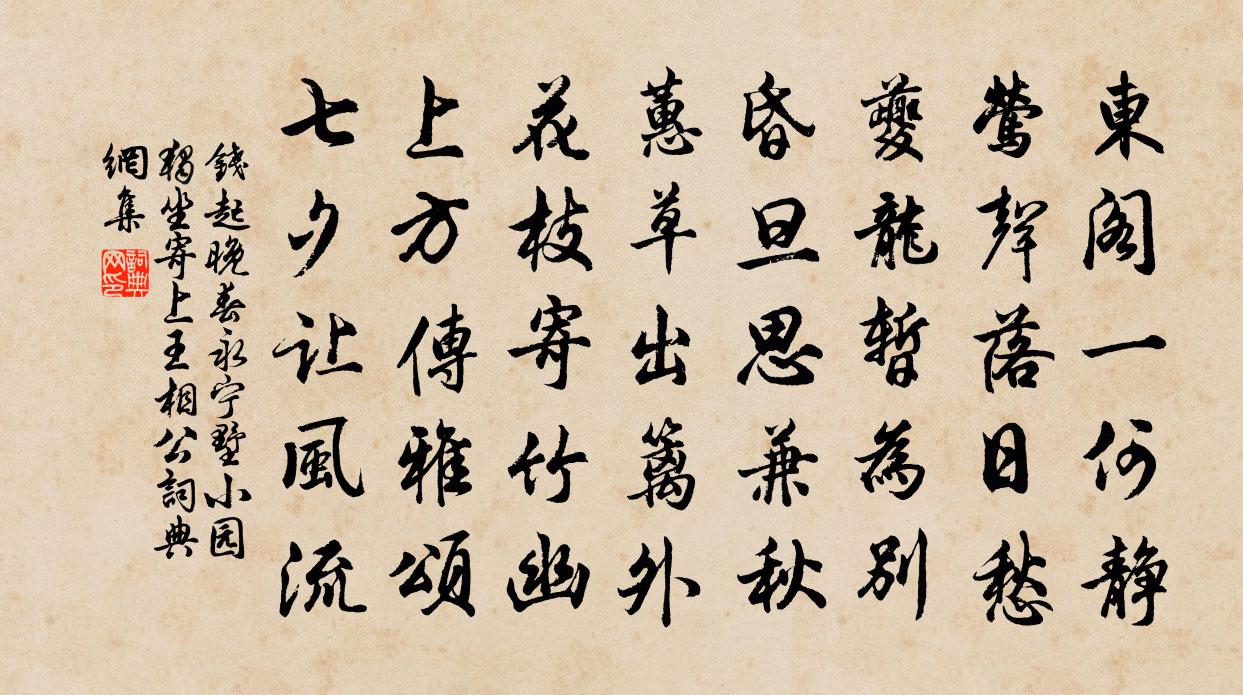 東阁一何静
鶯聲落日愁
夔龍暫為別
昏旦思兼秋
蕙草出篱外
花枝寄竹幽
上方傳雅頌
七夕让風流
錢起晚春永宁墅小园
獨坐寄上王相公詞典
網集
詞典
网印